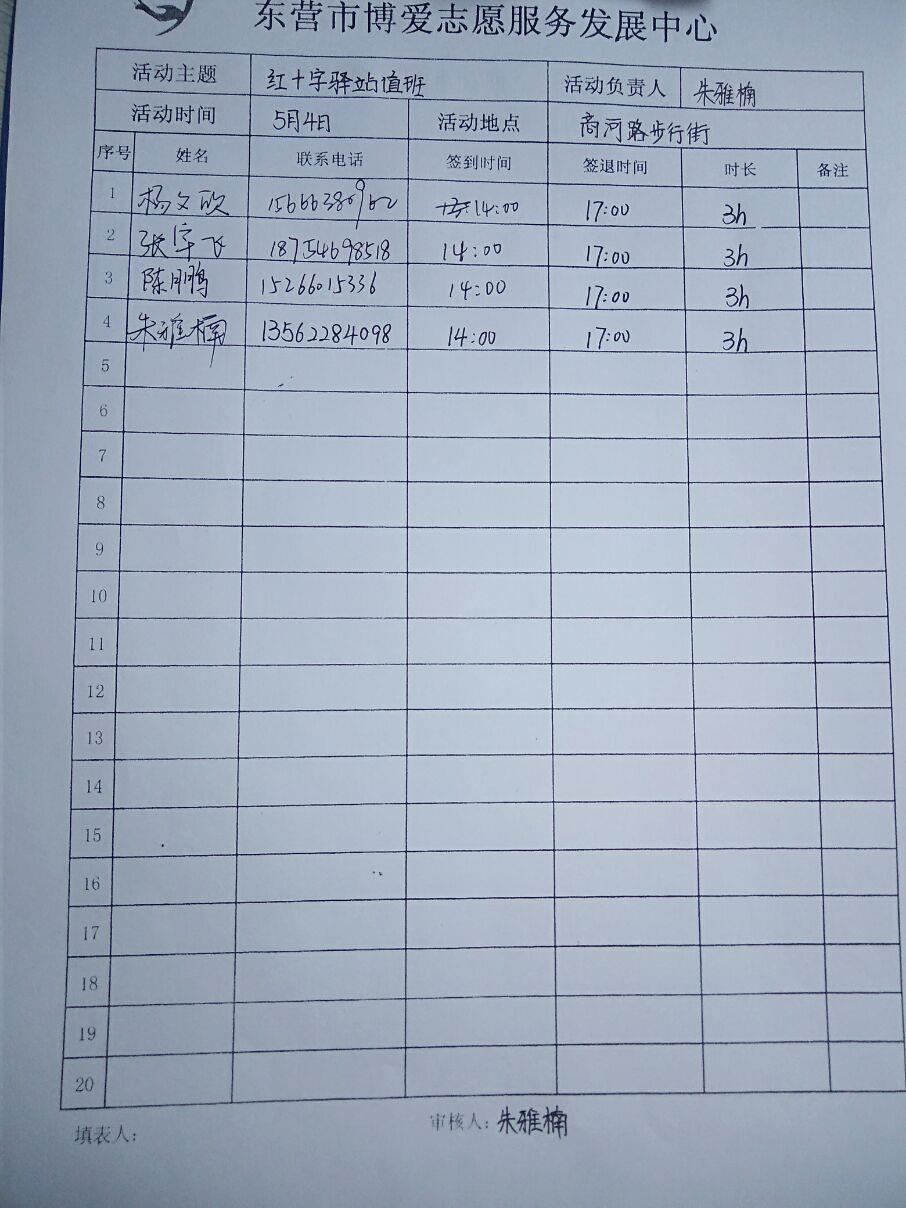 东营市博爱志愿服务发展中心
活动主题 红十字驿站值班 活动负责人 朱雅楠
活动时间 5月4日 活动地点 商河路步行街
序号 姓名 联系电话 签到时间 签退时间 时长 备注
1 杨文欣 14:00 17:00 3h
2 张宇飞 18754698518 14:00 17:00 3h
3 陈鹏 15266015336 14:00 17:00 3h
4 朱雅楠 13562284098 14:00 17:00 3h
5
6
7
8
9
10
11
12
13
14
15
16
17
18
19
20
填表人: 审核人: 朱雅楠